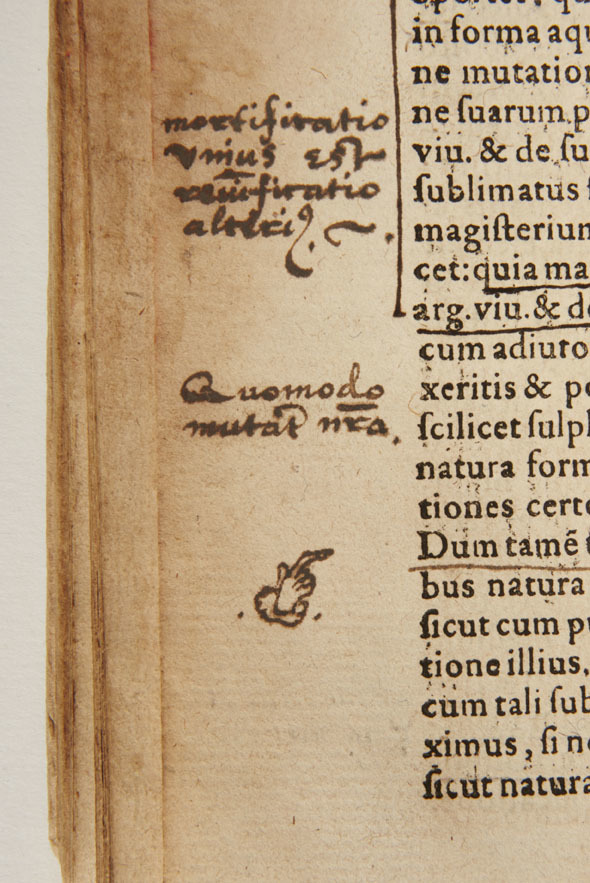 mortificatio
vnius est
reuificatio
alteriꝰ.
Quomodo
mutat̃ nr̃a.
in forma aqu
ne mutation
ne suarum p
viu. & de su
sublimatus
magisterium
cet: quia ma
arg. viu. & de
cum adiuto
xeritis & po
scilicet sulph
natura form
tiones certo
Dum tamẽ
bus natura
sicut cum pu
tione illius,
cum tali sub
ximus, si no
sicut natura